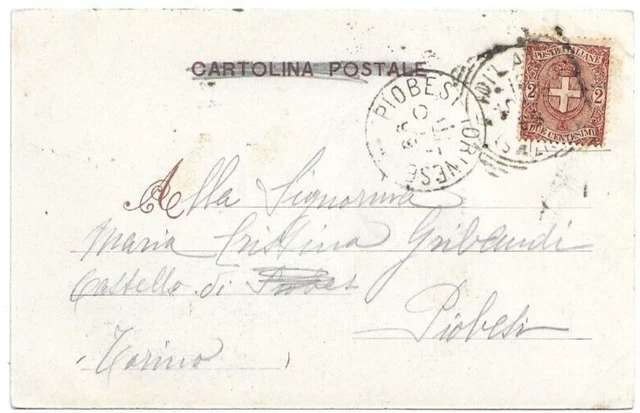 CARTOLINA POSTALE
POSTE ITALIANE
2 2
DUE CENTESIMI
MILANO
PIOBESI TORINESE
Alla Signorina
Maria Cristina Gribaudi
Castello di
Piobesi
(Torino)